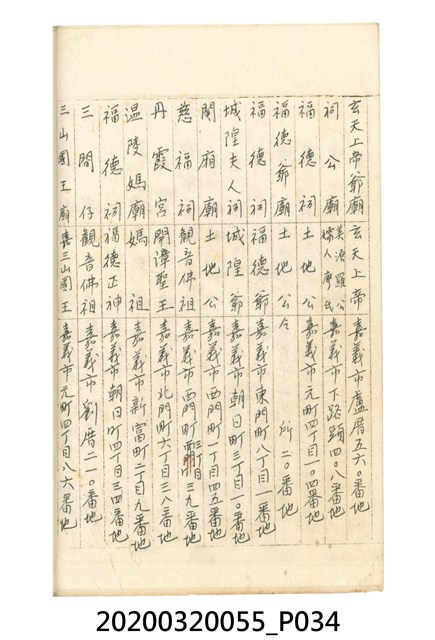 玄天上帝爺廟 玄天上帝 嘉義市盧厝五六〇番地
祠公廟 美源羅公 婦人廖氏 嘉義市下路頭四〇八番地
福德祠 土地公 嘉義市元町四丁目一〇四番地
福德爺廟 土地公 仝所二〇番地
福德祠 福德爺 嘉義市東門町八丁目一番地
城隍夫人祠 城隍爺 嘉義市朝日町三丁目一〇番地
關廂廟 土地公 嘉義市西門町一丁目四五番地
慈福祠 觀音佛祖 嘉義市西門町三丁目三九番地
丹霞宮 開漳聖王 嘉義市北門町六丁目三八番地
温陵媽廟 媽祖 嘉義市新富町二丁目九番地
福德祠 福德正神 嘉義市朝日町四丁目三四番地
三間仔 觀音佛祖 嘉義市劉厝二一〇番地
三山國王廟 三山國王 嘉義市元町四丁目八六番地
20200320055_P034